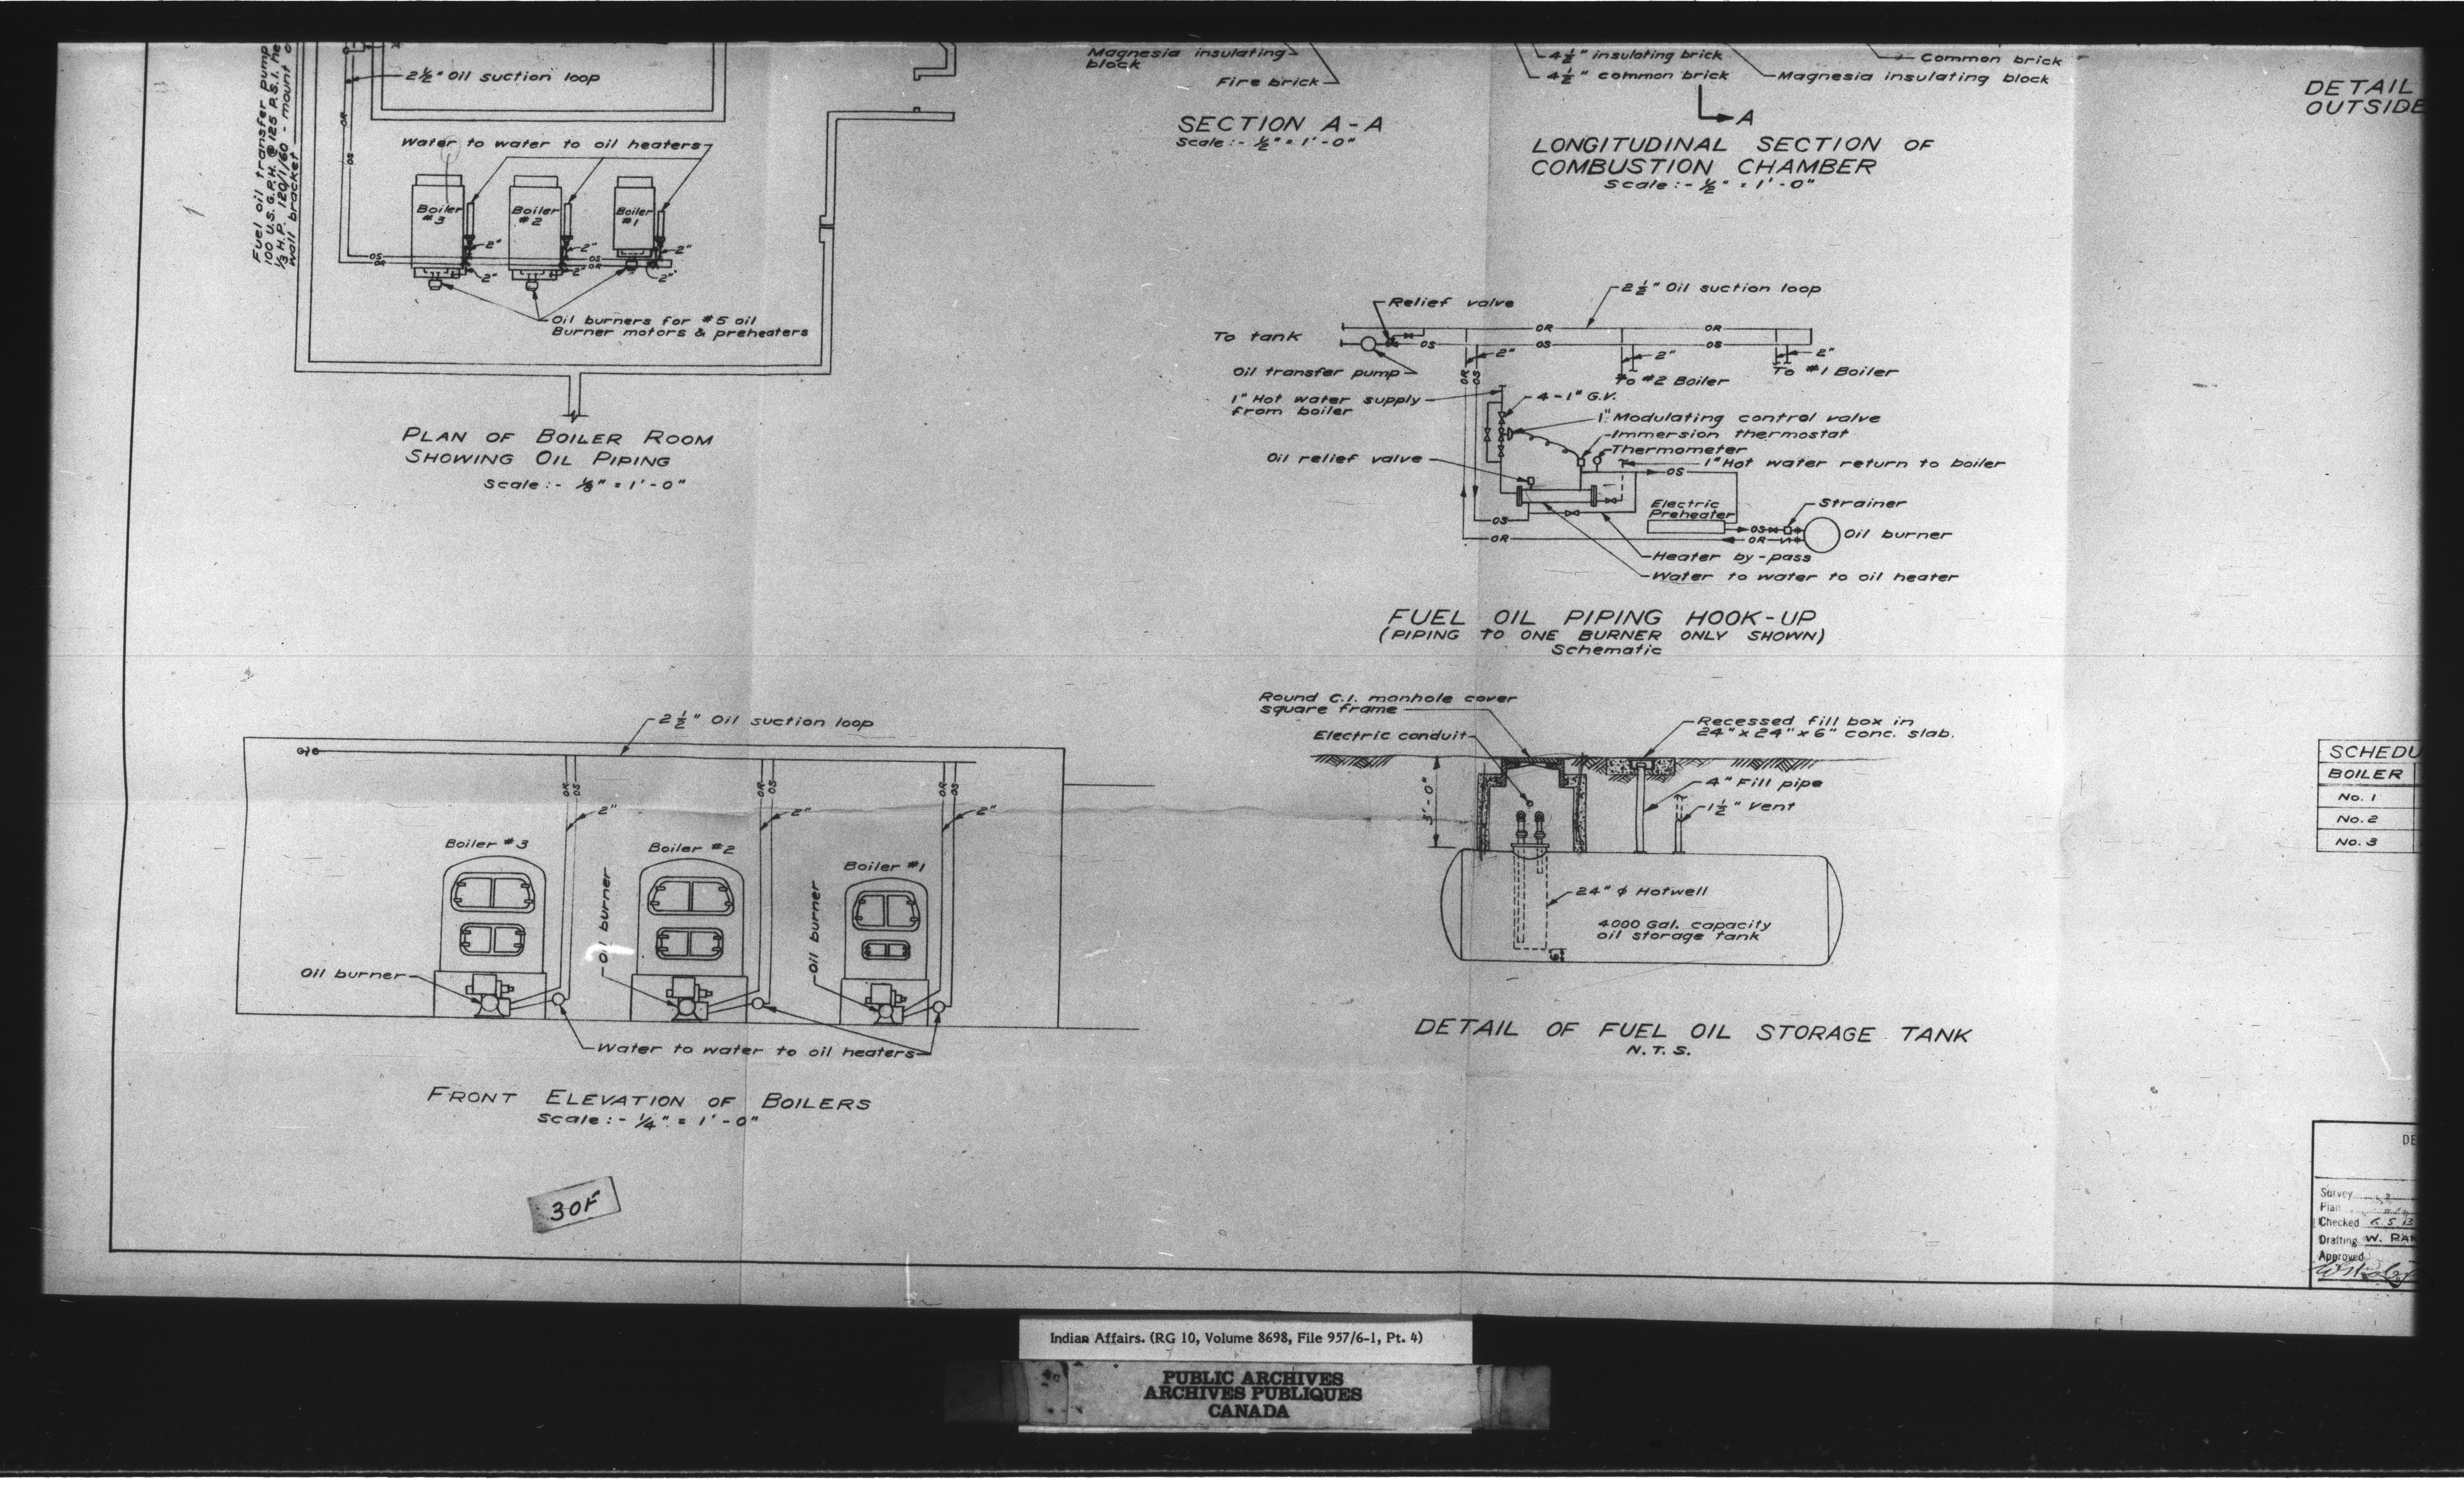 Fuel oil transfer pump
100 U.S. G.P.H. @ 125 P.S.I. he
1/3 H.P. 120/1/60 - mount o
wall bracket
2½" Oil suction loop
OR
OS
Water to water to oil heaters
Boiler
#3
Boiler
#2
Boiler
#1
2"
2"
2"
OS
OR
OS
OR
2"
2"
2"
Oil burners for #5 oil
Burner motors & preheaters
PLAN OF BOILER ROOM
SHOWING OIL PIPING
Scale:- ⅛" = 1'-0"
Magnesia insulating
block
Fire brick
SECTION A-A
Scale:- ½" = 1'-0"
4½" insulating brick
4½" common brick
Common brick
Magnesia insulating block
A
LONGITUDINAL SECTION OF
COMBUSTION CHAMBER
Scale:- ½" = 1'-0"
DETAIL
OUTSIDE
2½" Oil suction loop
Relief valve
To tank
OR
OR
OS
OS
OS
2"
2"
2"
Oil transfer pump
To #2 Boiler
To #1 Boiler
OR
OS
1" Hot water supply
from boiler
4-1" G.V.
1" Modulating control valve
Immersion thermostat
Thermometer
Oil relief valve
1" Hot water return to boiler
OS
Electric
Preheater
Strainer
OS
OS
OR
OR
Oil burner
Heater by-pass
Water to water to oil heater
FUEL OIL PIPING HOOK-UP
(PIPING TO ONE BURNER ONLY SHOWN)
Schematic
2½" Oil suction loop
OR
OS
OR
OS
OR
OS
2"
2"
2"
Boiler #3
Boiler #2
Boiler #1
Oil burner
Oil burner
Oil burner
Water to water to oil heaters
FRONT ELEVATION OF BOILERS
Scale:- ¼" = 1'-0"
30F
Round C.I. manhole cover
square frame
Electric conduit
Recessed fill box in
24" x 24" x 6" conc. slab.
3'-0"
4" Fill pipe
1½" Vent
24" ϕ Hotwell
4000 Gal. capacity
oil storage tank
6"
DETAIL OF FUEL OIL STORAGE TANK
N.T.S.
SCHEDU
BOILER
No. 1
No. 2
No. 3
DE
Survey
Plan
Checked
Drafting W. PAR
Approved
Indian Affairs. (RG 10, Volume 8698, File 957/6-1, Pt. 4)
PUBLIC ARCHIVES
ARCHIVES PUBLIQUES
CANADA